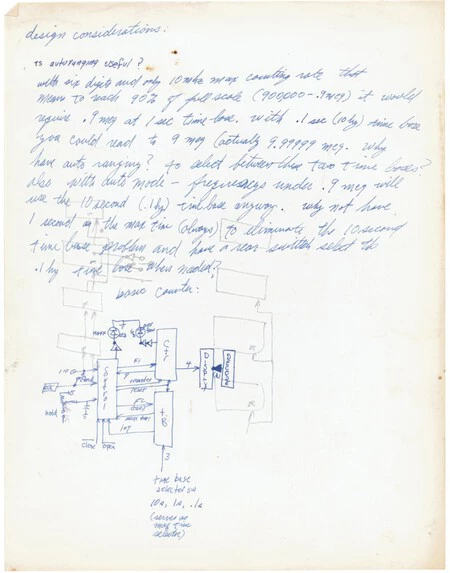 design considerations:
is autoranging useful?
with six digits and only 10mhz max counting rate that
means to reach 90% of full scale (900,000 - .9meg) it would
require .9 meg at 1 sec time base. with .1 sec (10hz) time base
you could read to 9 meg (actually 9.99999 meg. why
have auto ranging? to select between these two time bases?
also with auto mode - frequencies under .9 meg will
use the 10 second (.1hz) timebase anyway. why not have
1 second as the max time (always) to eliminate the 10 second
time base problem and have a rear switch select the
.1hz time base when needed?
basic counter:
Control
Ctr
t.B
4
reset
hold
close
open
3
time base
selector sw
10s, 1s, .1s
(serves as
max time
selector)